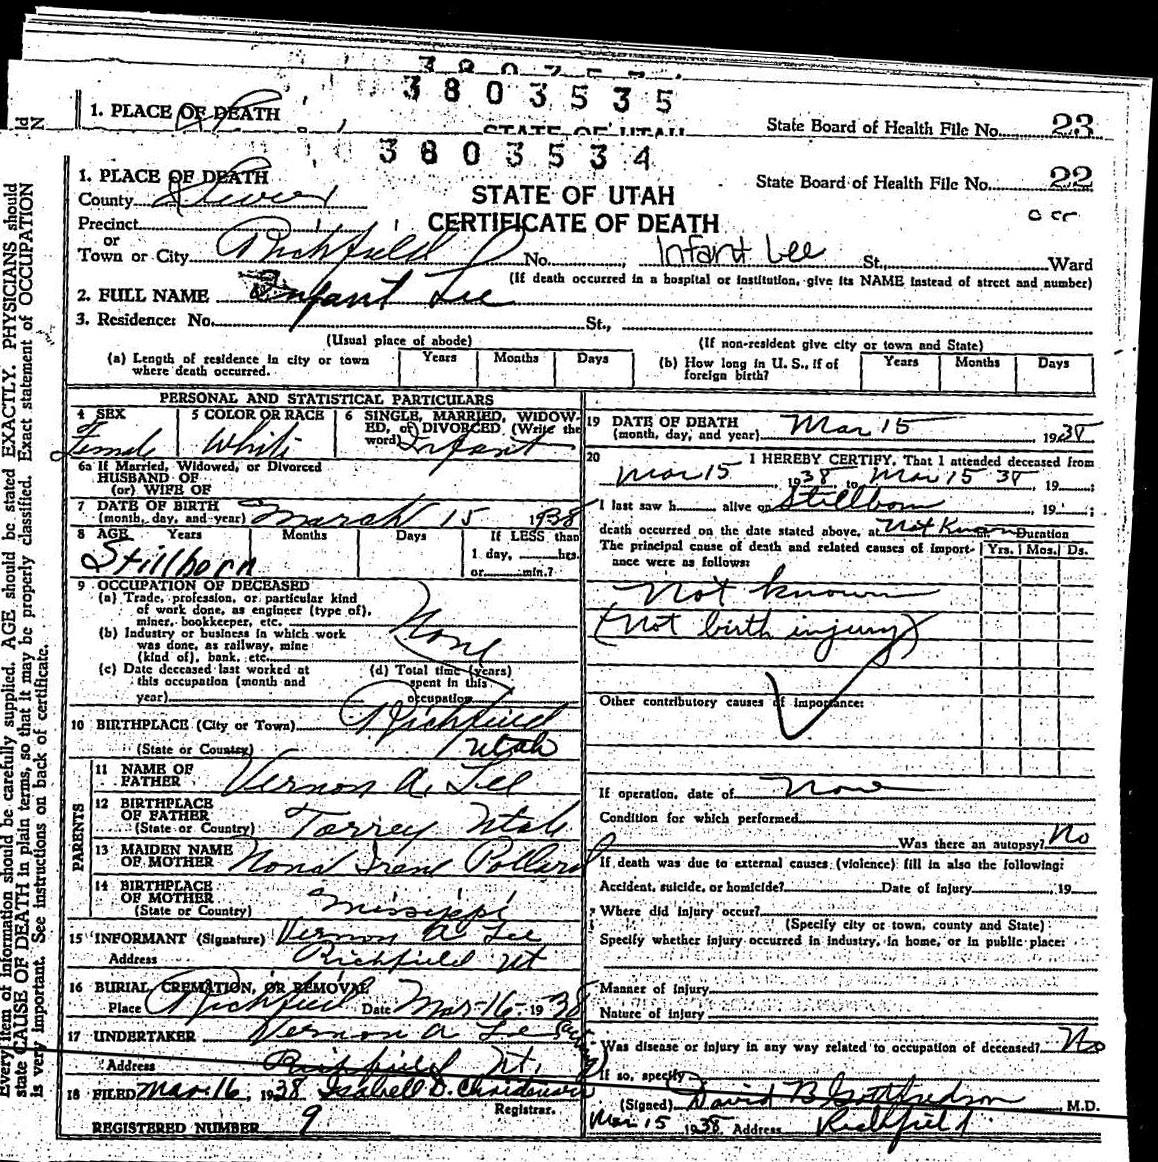 3 8 0 3 5 3 5
1. PLACE OF DEATH
STATE OF UTAH
State Board of Health File No. 23
3 8 0 3 5 3 4
1. PLACE OF DEATH
STATE OF UTAH
State Board of Health File No. 22
County Sevier
CERTIFICATE OF DEATH
Precinct
or
Town or City Richfield No. , Infant Lee St., Ward
(If death occurred in a hospital or institution, give its NAME instead of street and number)
2. FULL NAME Infant Lee
3. Residence: No. St.,
(Usual place of abode) (If non-resident give city or town and State)
(a) Length of residence in city or town where death occurred. Years Months Days
(b) How long in U. S., if of foreign birth? Years Months Days
PERSONAL AND STATISTICAL PARTICULARS
4 SEX Female
5 COLOR OR RACE White
6 SINGLE, MARRIED, WIDOWED, or DIVORCED (Write the word) Infant
6a If Married, Widowed, or Divorced
HUSBAND OF
(or) WIFE OF
7 DATE OF BIRTH
(month, day, and year) March 15 1938
8 AGE Years Months Days If LESS than
1 day, hrs.
or min.?
Stillborn
9 OCCUPATION OF DECEASED
(a) Trade, profession, or particular kind
of work done, as engineer (type of),
miner, bookkeeper, etc.
None
(b) Industry or business in which work
was done, as railway, mine
(kind of), bank, etc.
(c) Date deceased last worked at
this occupation (month and
year)
(d) Total time (years)
spent in this
occupation
10 BIRTHPLACE (City or Town) Richfield
(State or Country) Utah
PARENTS
11 NAME OF
FATHER Vernon A. Lee
12 BIRTHPLACE
OF FATHER
(State or Country) Torrey Utah
13 MAIDEN NAME
OF MOTHER Nona Irene Pollard
14 BIRTHPLACE
OF MOTHER
(State or Country) Missippi
15 INFORMANT (Signature) Vernon A Lee
Address Richfield Ut
16 BURIAL, CREMATION, OR REMOVAL
Place Richfield Date Mar-16-1938
17 UNDERTAKER Vernon A Lee
Address Richfield Ut.
18 FILED Mar. 16, 1938 Isabell D. Christensen
Registrar.
REGISTERED NUMBER 9
19 DATE OF DEATH
(month, day, and year) Mar 15 1938
20 I HEREBY CERTIFY, That I attended deceased from
Mar 15, 1938 to Mar 15 38 19
I last saw h alive on Stillborn 19 ;
death occurred on the date stated above, at Not Known
The principal cause of death and related causes of importance were as follows: Duration
Yrs. Mos. Ds.
Not known
(Not birth injury)
Other contributory causes of importance:
If operation, date of None
Condition for which performed
Was there an autopsy? No
If death was due to external causes (violence) fill in also the following:
Accident, suicide, or homicide? Date of injury , 19
Where did injury occur?
(Specify city or town, county and State)
Specify whether injury occurred in industry, in home, or in public place:
Manner of injury
Nature of injury
Was disease or injury in any way related to occupation of deceased? No
If so, specify
(Signed) David B Gottfredson , M.D.
Mar 15 1938 Address Richfield
Every item of information should be carefully supplied. AGE should be stated EXACTLY. PHYSICIANS should
state CAUSE OF DEATH in plain terms, so that it may be properly classified. Exact statement of OCCUPATION
is very important. See instructions on back of certificate.